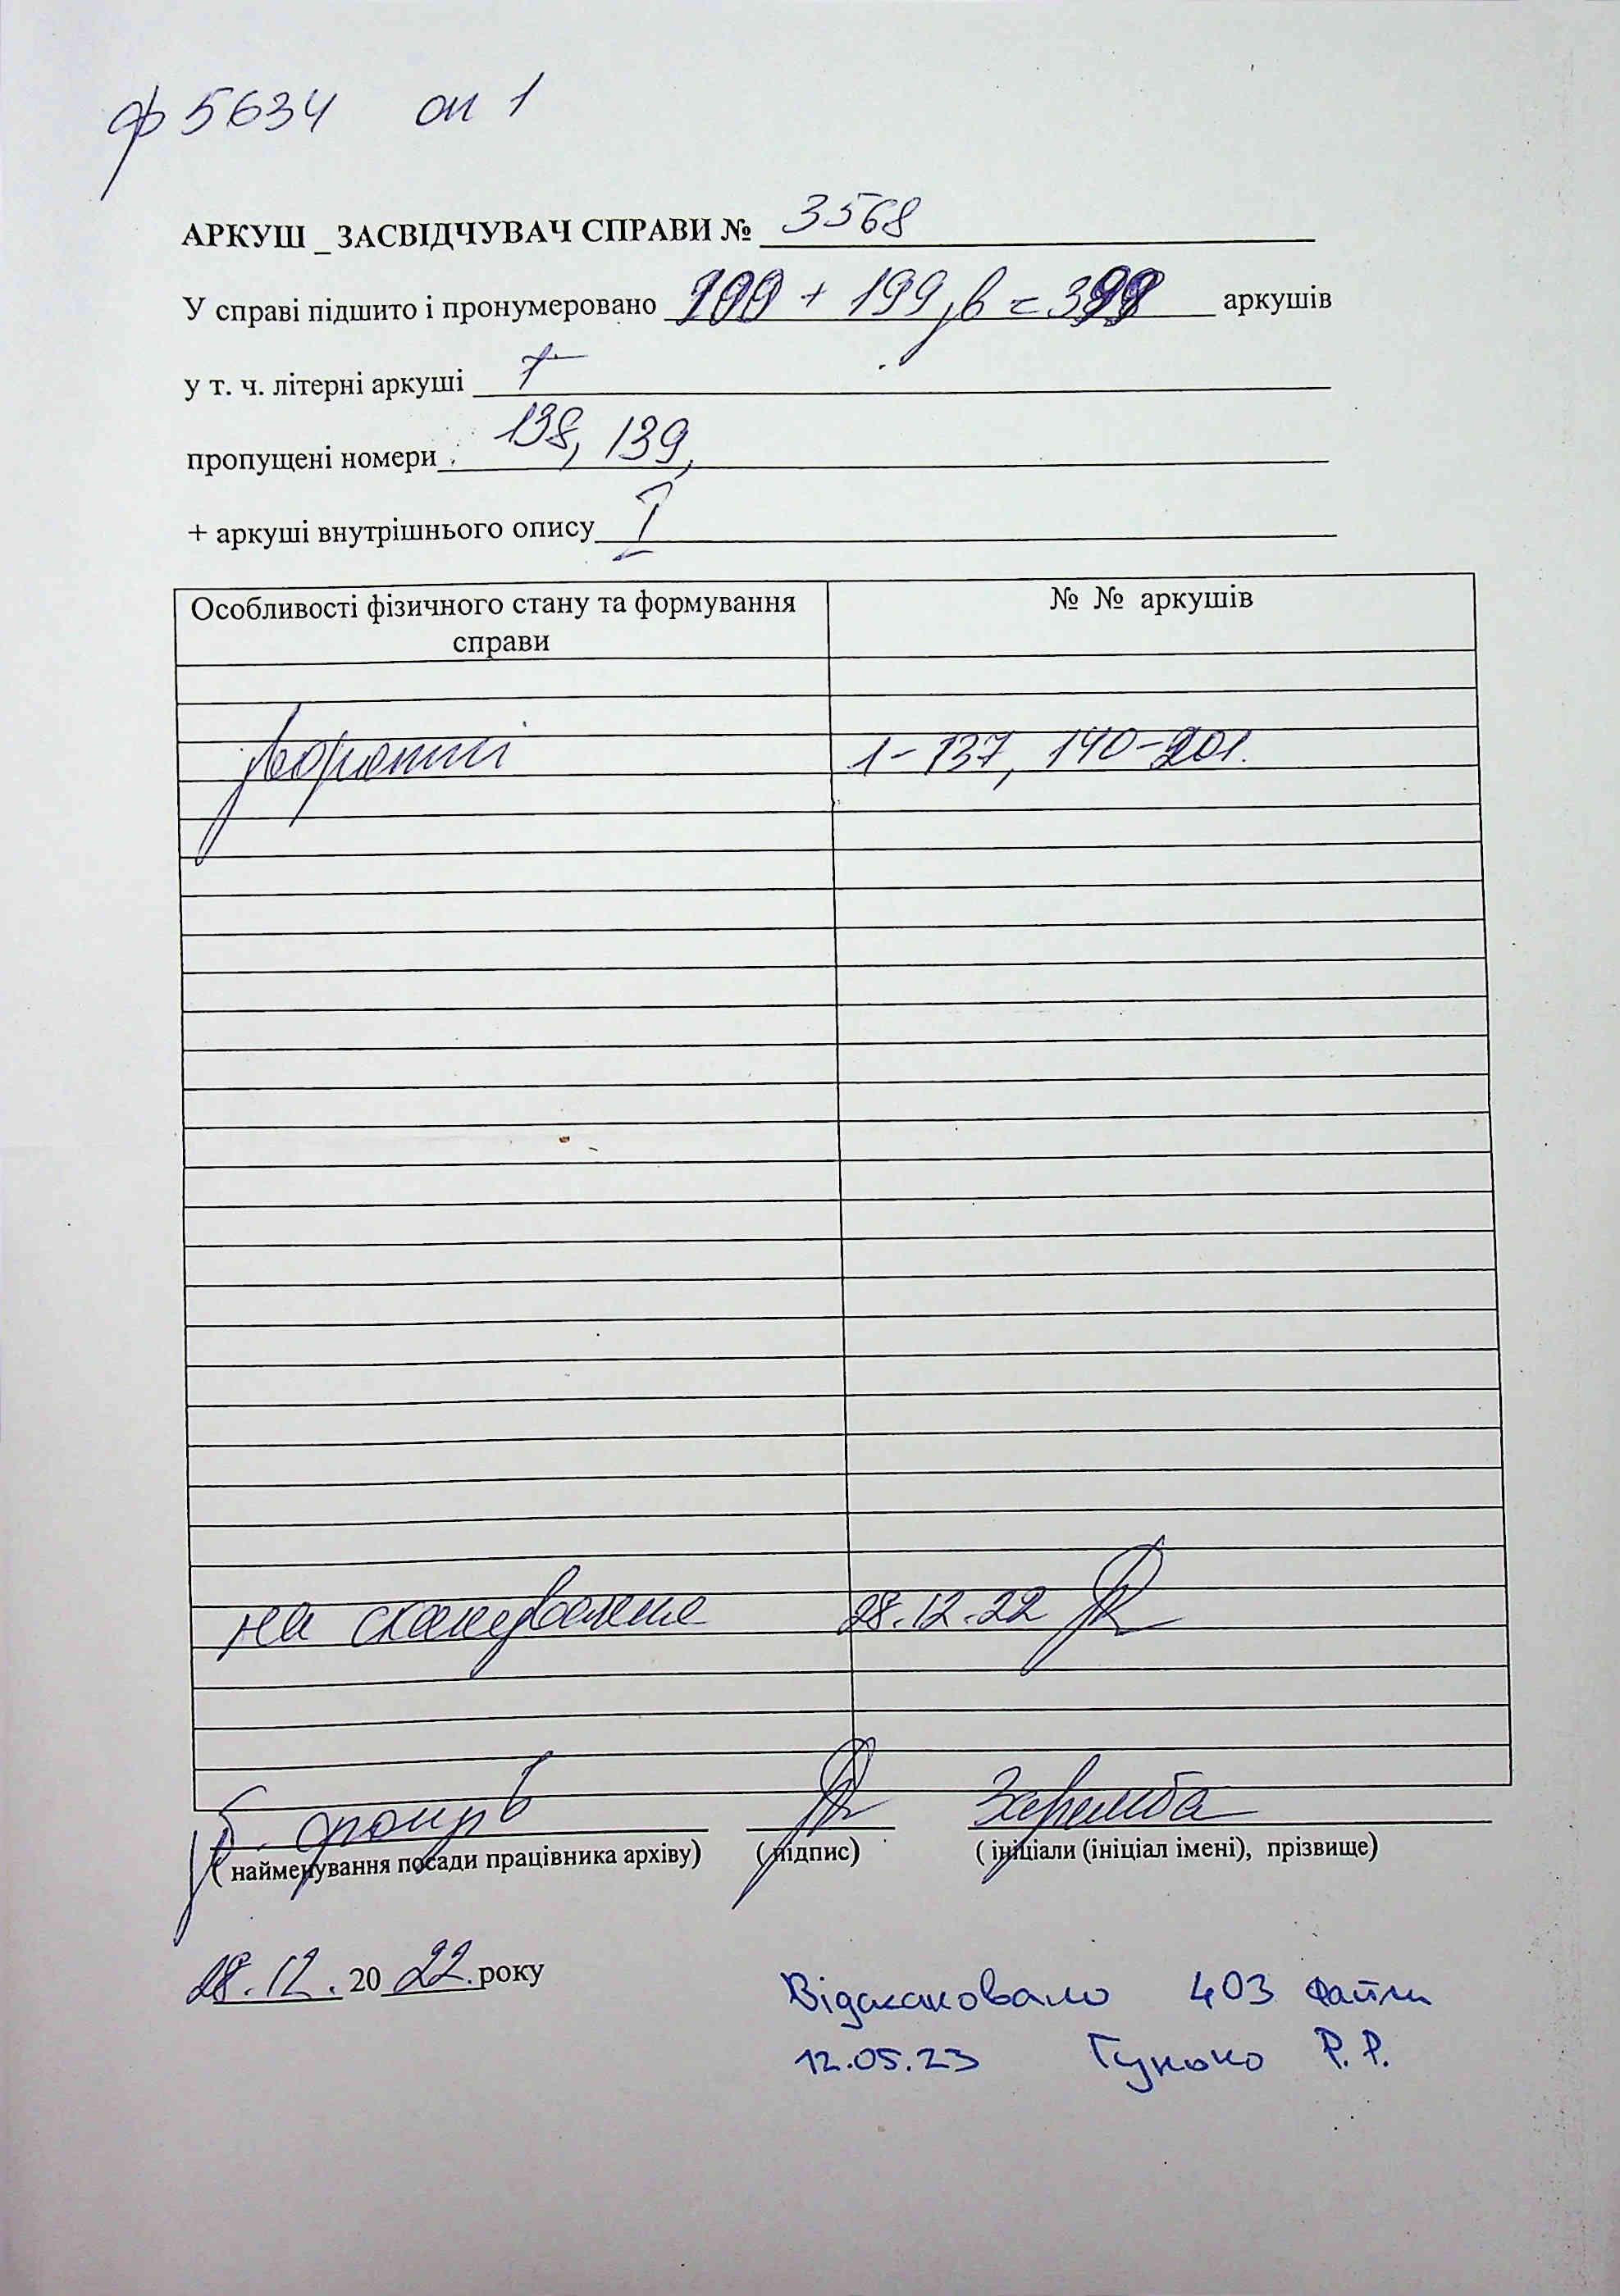 ф 5634 оп 1
АРКУШ _ ЗАСВІДЧУВАЧ СПРАВИ № 3568
У справі підшито і пронумеровано + 199 зв = аркушів
у т. ч. літерні аркуші
пропущені номери 138, 139,
+ аркуші внутрішнього опису I
Особливості фізичного стану та формування справи
№ № аркушів
звороти 1-137, 140-201.
на сканування 28.12.22
(найменування посади працівника архіву) (підпис) Заремба
( ініціали (ініціал імені), прізвище)
28.12. 2022. року
Відскановано 403 файли
12.05.23 Гунько Р. Р.